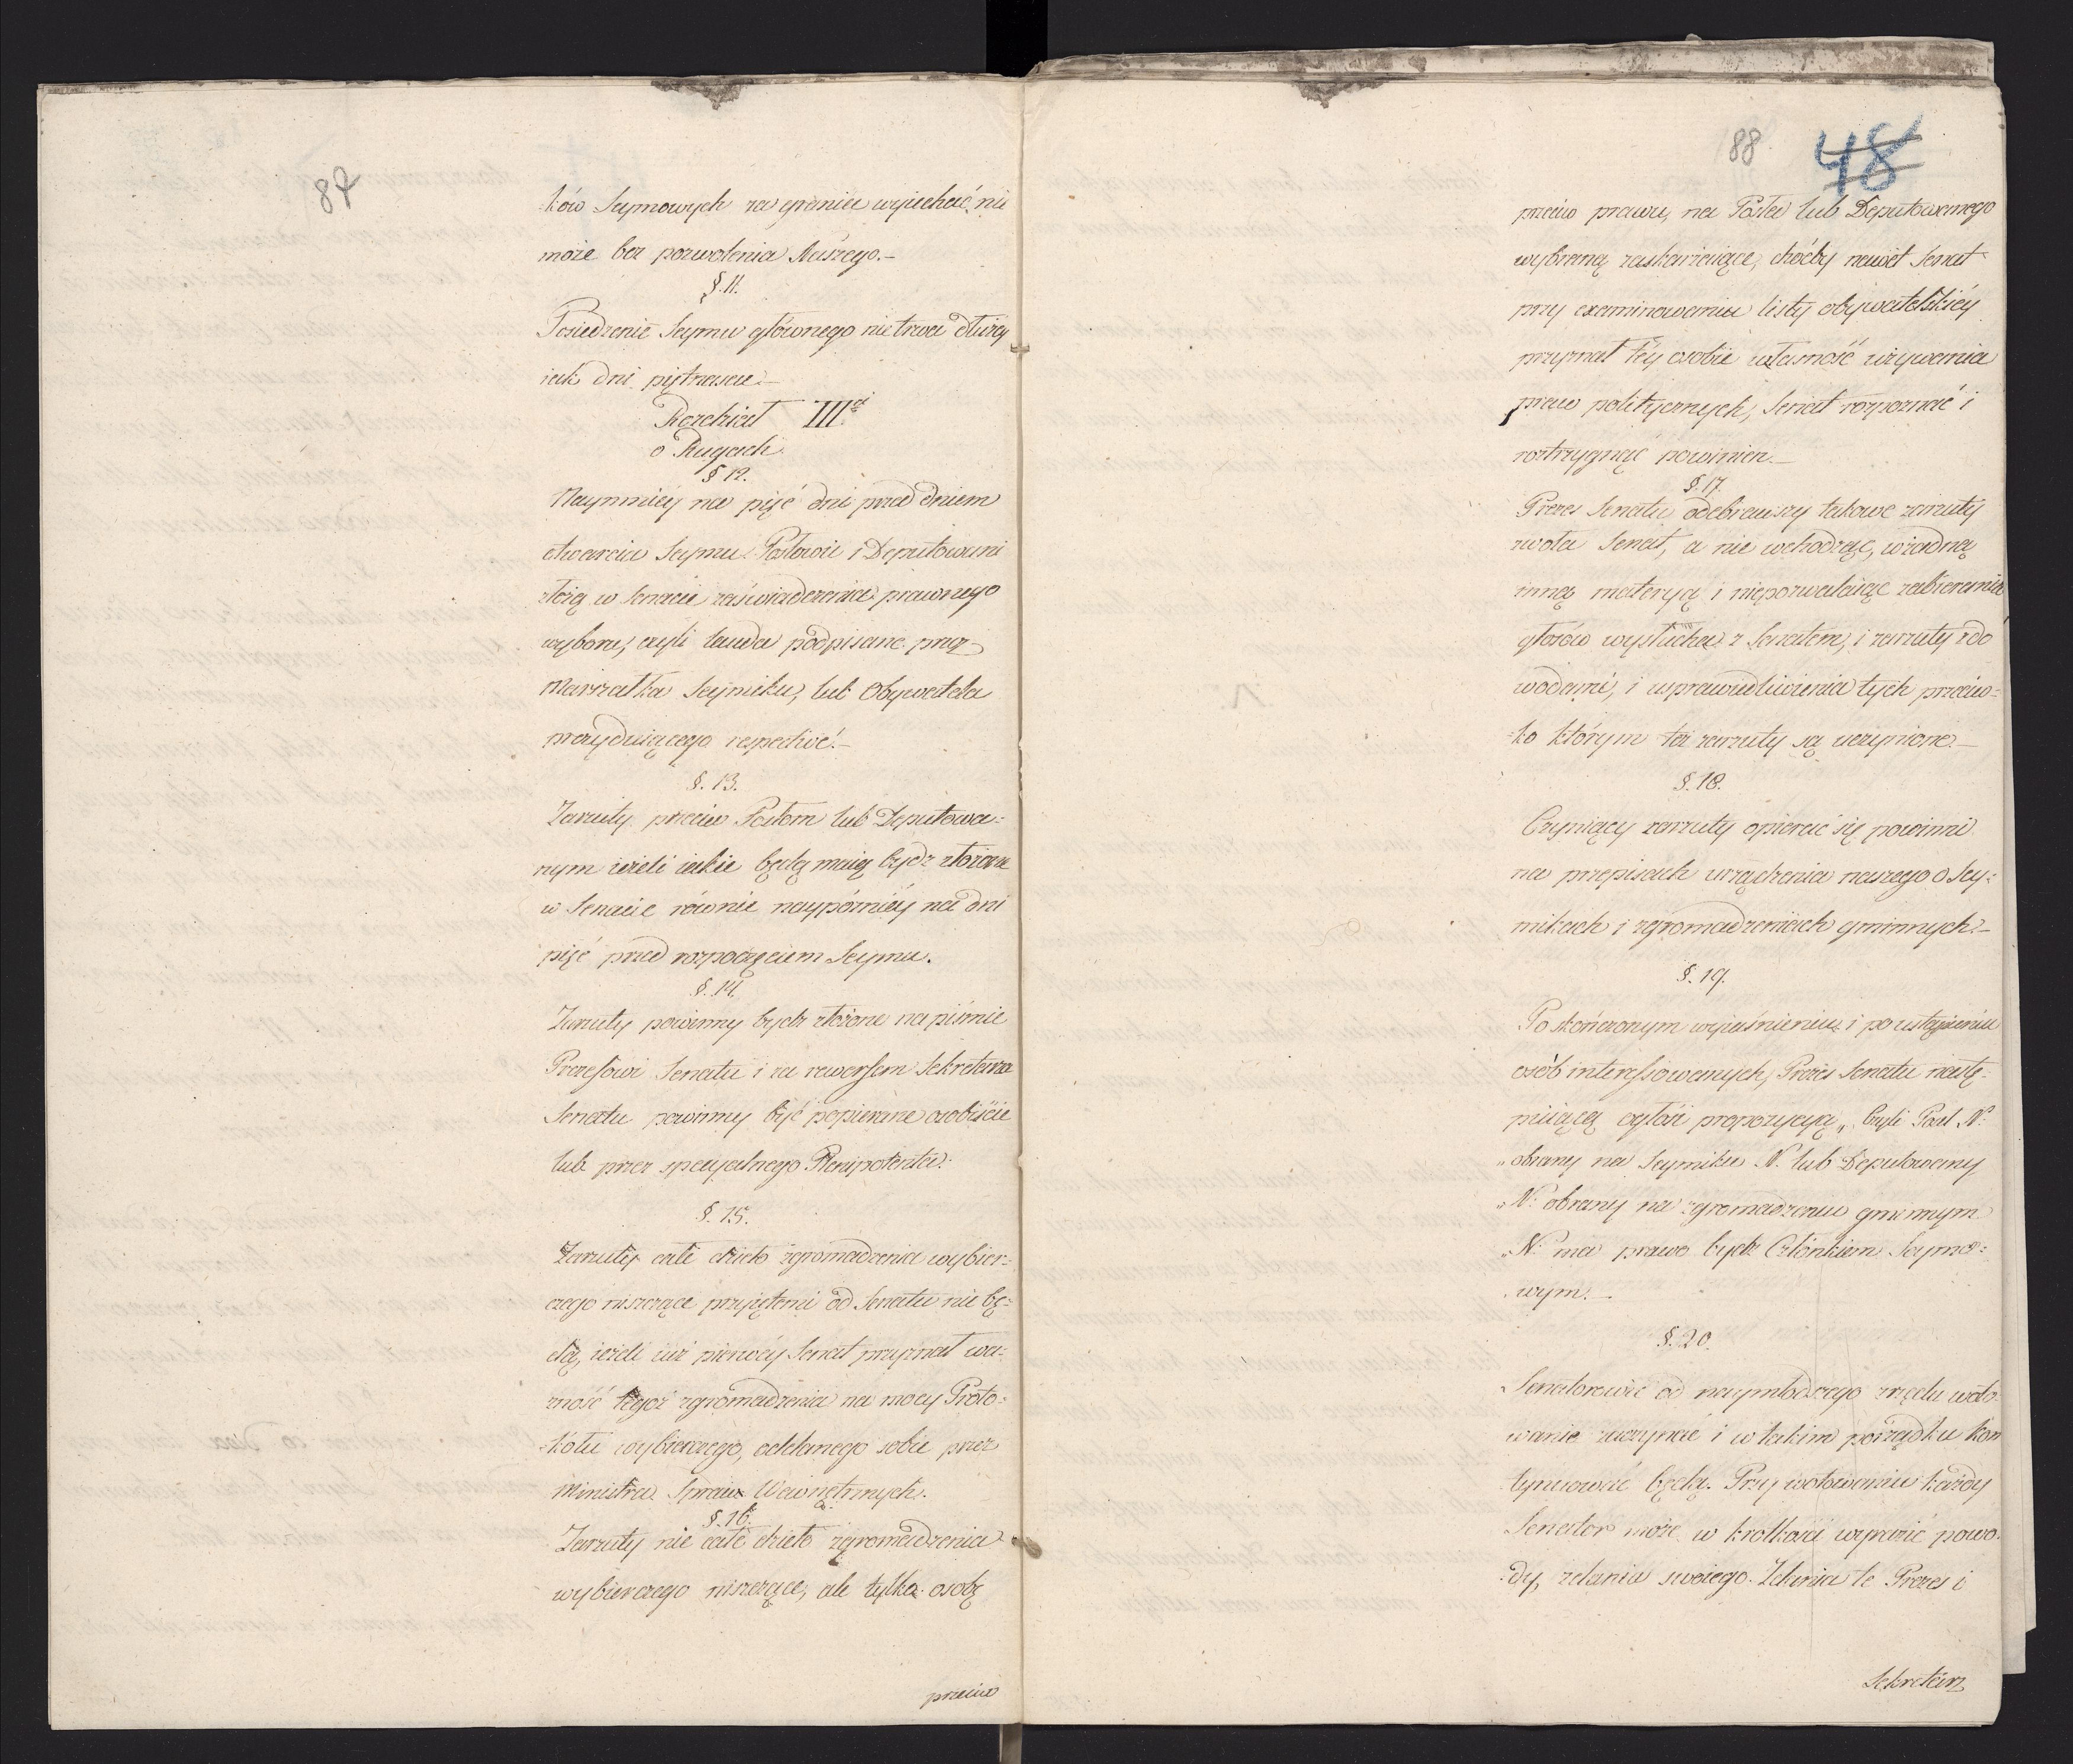 87
ków Seymowych za granice wyiechać nie
może bez pozwolenia Naszego.—
§. 11.
Posiedzenie Seymu głównego nie trwa dłużey
iak dni piętnaście.—
Rozdział III.ci
o Rugach
§ 12.
Naymniéy na pięć dni przed dniem
otwarcia Seymu Posłowie i Deputowani
złożą w Senacie zaświadczenie prawnego
wyboru, czyli lauda podpisane przez
Marszałka Seymiku, lub Obywatela
prezyduiącego respective.—
§. 13.
Zarzuty przeciw Posłom lub Deputowa=
nym ieżeli iakie będą maią bydz złożone
w Senacie równie naypóźniéy na dni
pięć przed rozpoczęciem Seymu.
§. 14.
Zarzuty powinny bydz złożone na piśmie
Prezesowi Senatu i za rewersem Sekretarza
Senatu powinny być popierane osobiście
lub przez specyalnego Plenipotenta.
§. 15.
Zarzuty całe dzieło zgromadzenia wybier=
czego niszczące przyiętemi od Senatu nie bę=
dą, ieżeli iuż pierwéy Senat przyznał wa=
żność tegoż zgromadzenia na mocy Proto=
kołu wybierczego, oddanego sobie przez
Ministra Spraw Wewnętrznych.
§. 16.
Zarzuty nie całe dzieło zgromadzenia
wybierczego niszczące, ale tylko osobę
przeciw
88
48
przeciw prawu, na Posła lub Deputowanego
wybraną zaskarżaiące, choćby nawet Senat
przy examinowaniu listy obywatelskiéy
przyznał téy osobie własność używania
praw politycznych, Senat rozpoznać i
roztrzygnąć powinien.—
§. 17.
Prezes Senatu odebrawszy takowe zarzuty
zwoła Senat, a nie wchodząc, w żadną
inną materyą i niepozwalaiąc zabierania
głosów wysłucha z Senatem, i zarzuty z do
wodami, i usprawiedliwienia tych przeciw=
ko którym te zarzuty są uczynione.—
§. 18.
Czyniący zarzuty opierać się powinni
na przepisach urządzenia naszego o Sey=
mikach i zgromadzeniach gminnych.—
§. 19.
Po skończonym wyiaśnieniu i po ustąpieniu
osób interessowanych, Prezes Senatu nastę=
puiącą ogłosi propozycyą „ Czyli Poseł N.
„ obrany na Seymiku N. lub Deputowany
„ N. obrany na zgromadzeniu gminnym
„ N. ma prawo bydz Członkiem Seymo=
wym.—
§. 20.
Senatorowie od naymłodszego rzędu woto=
wanie zaczynać i w takim porządku kon
tynuować będą. Przy wotowaniu każdy
Senator może w krótkości wyrazić powo=
dy, zdania swoiego. Zdania te Prezes i
Sekretarz